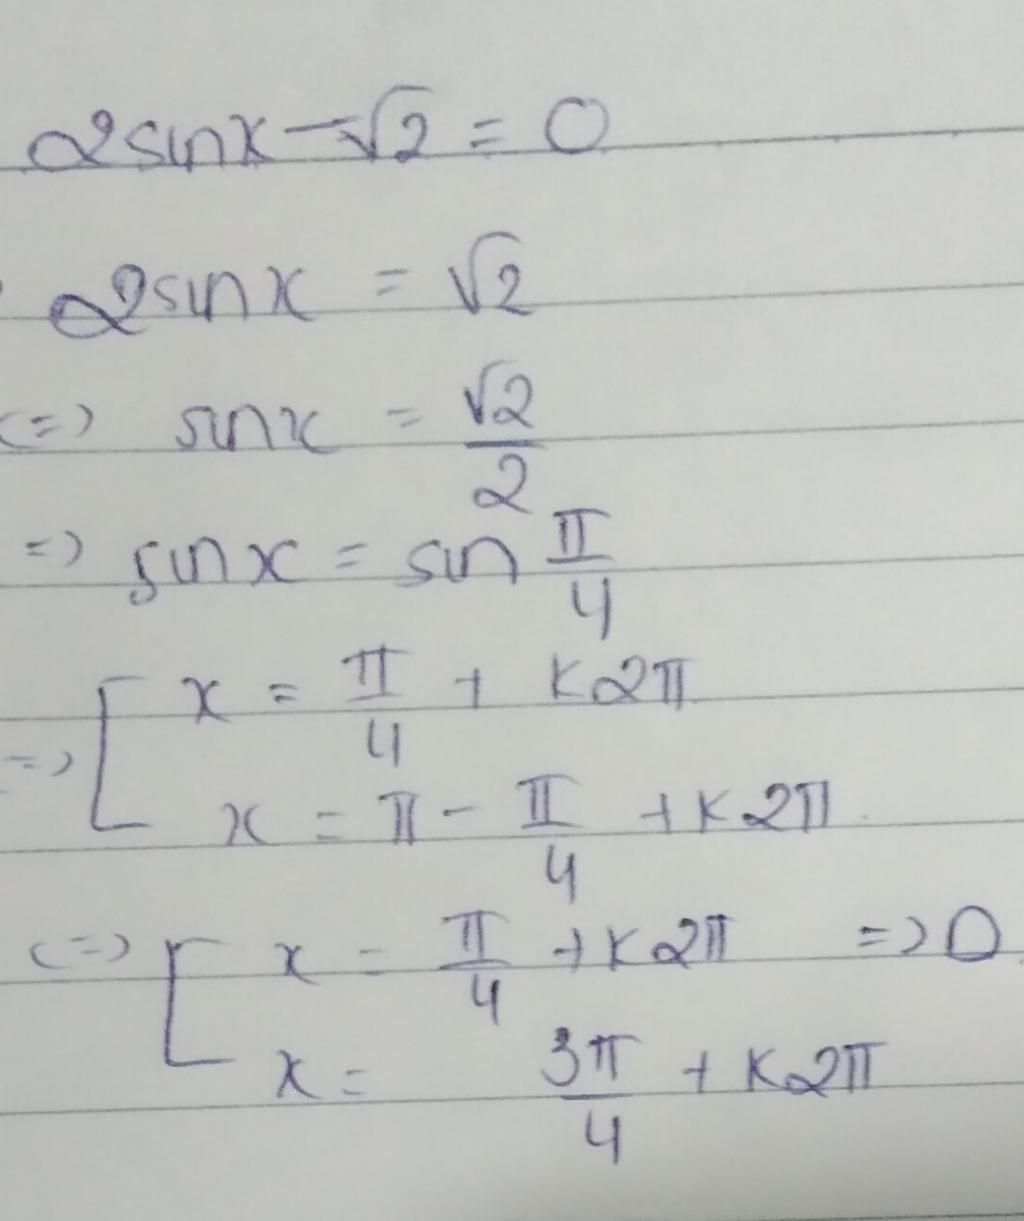 2sinx - √2 = 0
2sinx = √2
<=> sinx = √2/2
=> sinx = sin π/4
=> [ x = π/4 + k2π
x = π - π/4 + k2π
<=> [ x = π/4 + k2π => D
x = 3π/4 + k2π